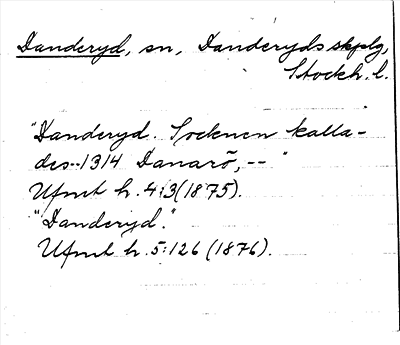 Danderyd, sn, Danderyds skplg,
Stockh. l.
"Danderyd. Socknen kalla-
des--1314 Danarö,--"
Ufmt h. 4:3(1875).
"Danderyd."
Ufmt h. 5:126 (1876).